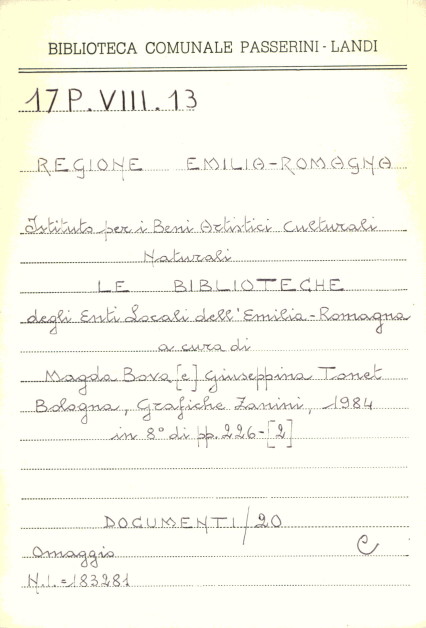 BIBLIOTECA COMUNALE PASSERINI - LANDI
17 P. VIII. 13
REGIONE EMILIA-ROMAGNA
Istituto per i Beni Artistici Culturali
Naturali
LE BIBLIOTECHE
degli Enti Locali dell'Emilia-Romagna
a cura di
Magda Bova [e] Giuseppina Tonet
Bologna, Grafiche Zanini, 1984
in 8° di pp. 226-[2]
DOCUMENTI/20
Omaggio C
N.I. = 183281